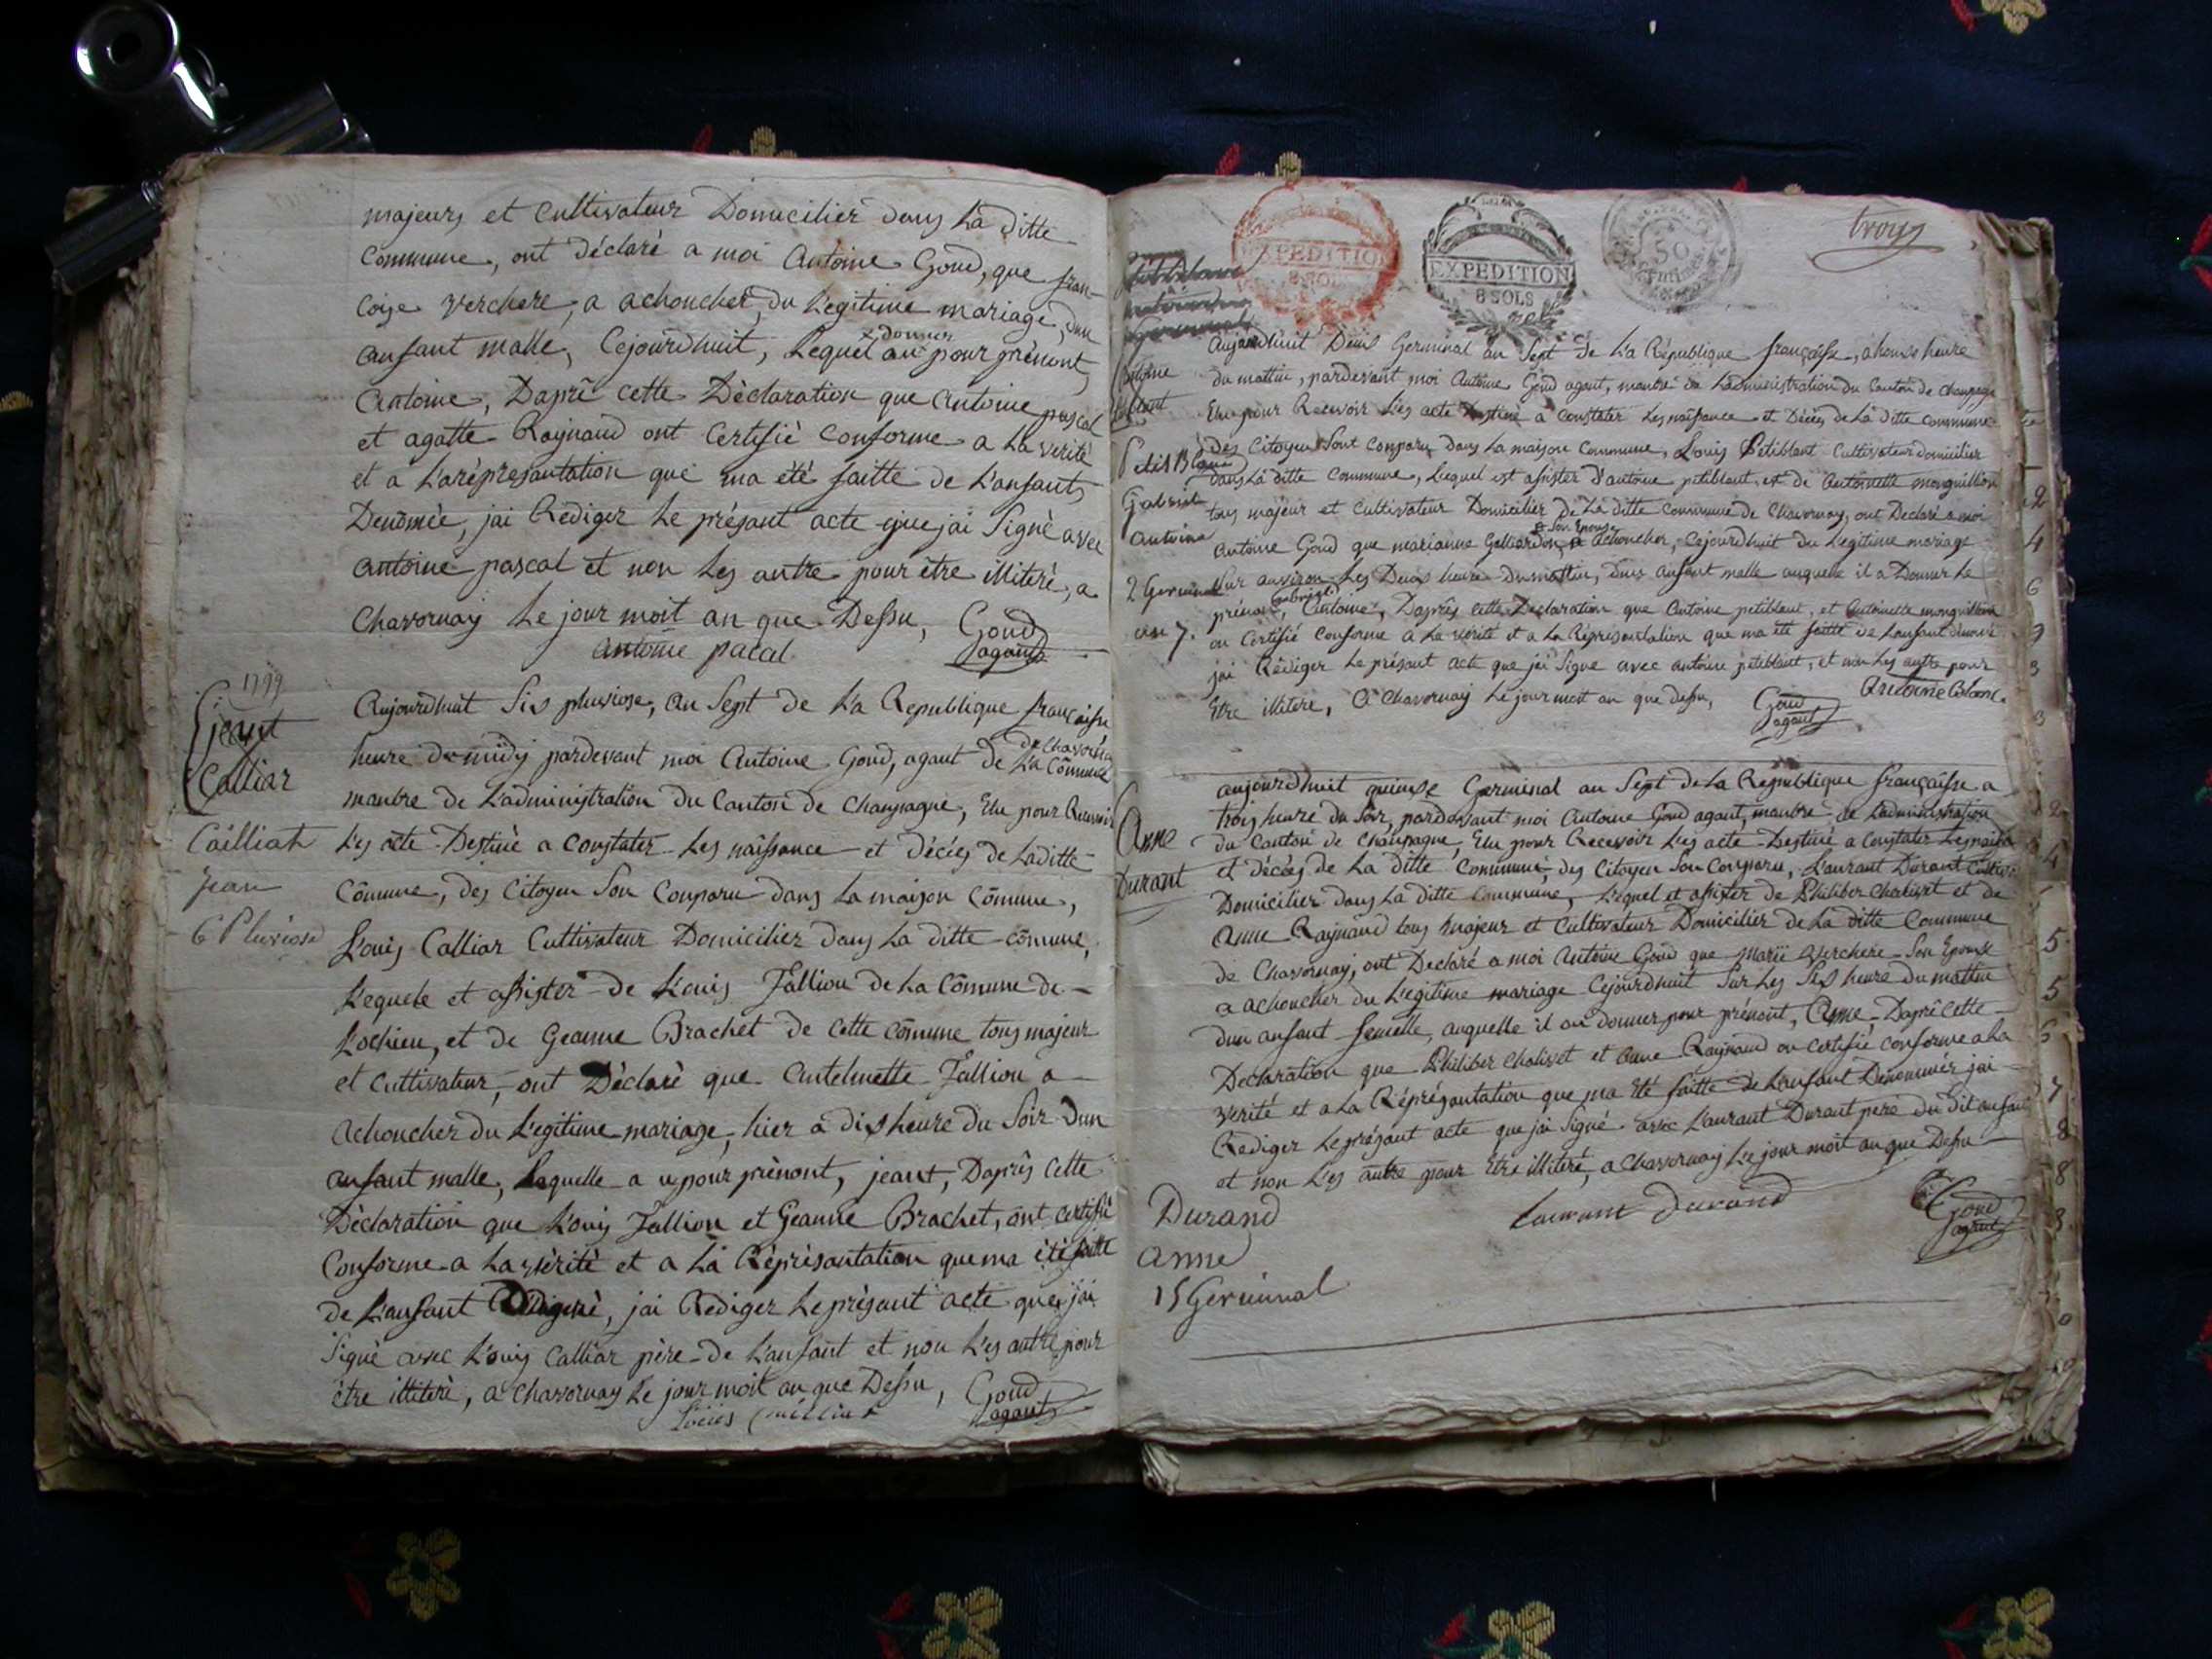 majeurs et Cultivateur Domicilier dans La ditte
Commune, ont déclaré a moi Antoine Goud, que fran-
coise verchere, a achoucher, du Legitime mariage, dun
anfant malle, Cejourdhuit, Lequel an donner pour prénont,
Antoine, Daprè cette Déclaration que Antoine pascal
et agatte Raynaud ont Certifié Conforme a La verité
et a Lareprésantation que ma été faitte de L'anfant,
Denōmée, jai Rédiger Le présant acte que jai Signé avec
Antoine pascal et non Les autre pour être illiteré, a
Chavornay Le jour moit an que Dessu, Goud
agant
antoine pacal
1799
jeant
Calliar
Cailliat
Jean
6 Pluviose
Aujourdhuit Six pluviose, an Sept de La Republique française
heure de midy pardevant moi Antoine Goud, agant de La Cōmune
de Chavornay
manbre de L'administration du Canton de Champagne, Elu pour Recevoir
Les acte Destiné a Constater Les naissance et décés de La ditte
Cōmune, des Citoyen Son Conparu dans La maison Cōmune,
Louis Calliar Cultivateur Domicilier dans La ditte cōmune,
Lequele et assister de Louis Jallion de La Cōmune de
Lochieu, et de Geanne Brachet de Cette cōmune tous majeur
et Cultivateur, ont Déclaré que Antelmette Jallion a
achoucher du Legitime mariage, hier a dix heure du Soir Dun
anfant malle, Laquelle a u pour prénont, jeant, Daprés Cette
Déclaration que Louis Jallion et Geanne Brachet, ont certifié
Conforme a La vérité et a La Réprésantation que ma été faitte
de L'anfant, jai Rediger Le présant acte que jai
Signé avec Louis Calliar père de L'anfant et non Les autre pour
être illiteré, a Chavornay Le jour moit an que Dessu, Goud
agant
Loüis
EXPEDITION
8 SOLS
EXPEDITION
8 SOLS
50
Centimes
troys
Petit Blanc
Gabriel
antoine
2 Germinal
an 7.
Aujourdhuit Deux Germinal an Sept de La République française, a honze heure
du mattin, pardevant moi Antoine Goud agant, manbre de Ladministration du Canton de Champagne
Elu pour Recevoir Les acte Destiné a Constater Les naissance et Décés de La ditte commune
des Citoyen Sont Conparu dans La maison Commune, Louis Petiblant Cultivateur domicilier
dans La ditte Commune, Lequel est assister d'antoine petiblant, et de Antoinette monguillion
tous majeur et Cultivateur Domicilier de La ditte commune de Chavornay, ont Declaré a moi
Antoine Goud que marianne Galliardon Son Epouse a achoucher, Cejourdhuit du Legitime mariage
Sur anviron Les Deux heure du mattin, dun anfant malle auquelle il a Donner Le
prénont, Gabriel Antoine, Daprés cette Declaration que Antoine petiblant, et Antoinette monguillion
on Certifié Conforme a La vérité et a La Réprésantation que ma été faitte de L'anfant dénomé
jai Rédiger Le présant acte que jai Signé avec antoine petiblant, et non Les autre pour
Etre illiteré, A Chavornay Le jour moit an que dessu, Goud
agant
Anne
Durant
aujourdhuit quinze Germinal an Sept de La République française a
trois heure du Soir, pardevant moi Antoine Goud agant, manbre de Ladministration
du Canton de Champagne, Elu pour Recevoir Les acte Destiné a Constater Les naissance
et décés de La ditte Commune, des Citoyen Son Conparu, Laurant Durant Cultiv.
Domicilier dans La ditte Commune, Lequel et assister de Philiber Chalivet et de
Anne Raynaud tous majeur et Cultivateur Domicilier de La ditte Commune
de Chavornay, ont Declaré a moi Antoine Goud que Marie Verchere Son Epouse
a achoucher du Legitime mariage Cejourdhuit Sur Les Six heure du mattin
dun anfant femelle, auquelle il on donner pour prénont, Anne Daprè cette
Declaration que Philiber Chalivet et Anne Raynaud on certifié conforme a La
verité et a La Réprésantation que ma Eté faitte de L'anfant Dénommée jai
Rediger Le présant acte que jai Signé avec Laurant Durant peré du dit anfant
et non Les autre pour Etre illiteré, a Chavornay Le jour moit an que Dessu
Durand
anne
15 Germinal
Laurant Durand
Goud
agant